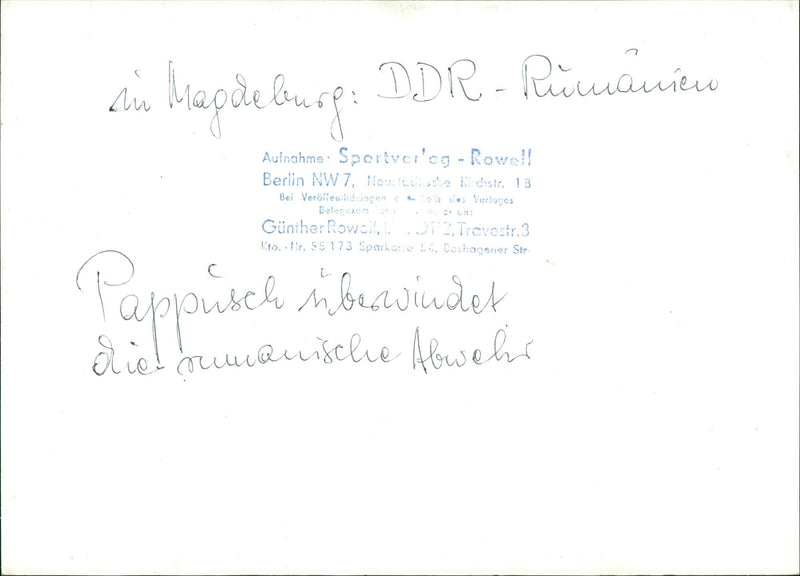 in Magdeburg: DDR - Rumänien
Aufnahme: Sportverlag - Rowell
Berlin NW 7, Neustädtische Kirchstr. 18
Bei Veröffentlichungen des Verlages
Günther Rowell, Travestr. 3
Kto.-Nr. 55 173 Sparkasse Boxhagener Str.
Pappusch überwindet
die rumänische Abwehr